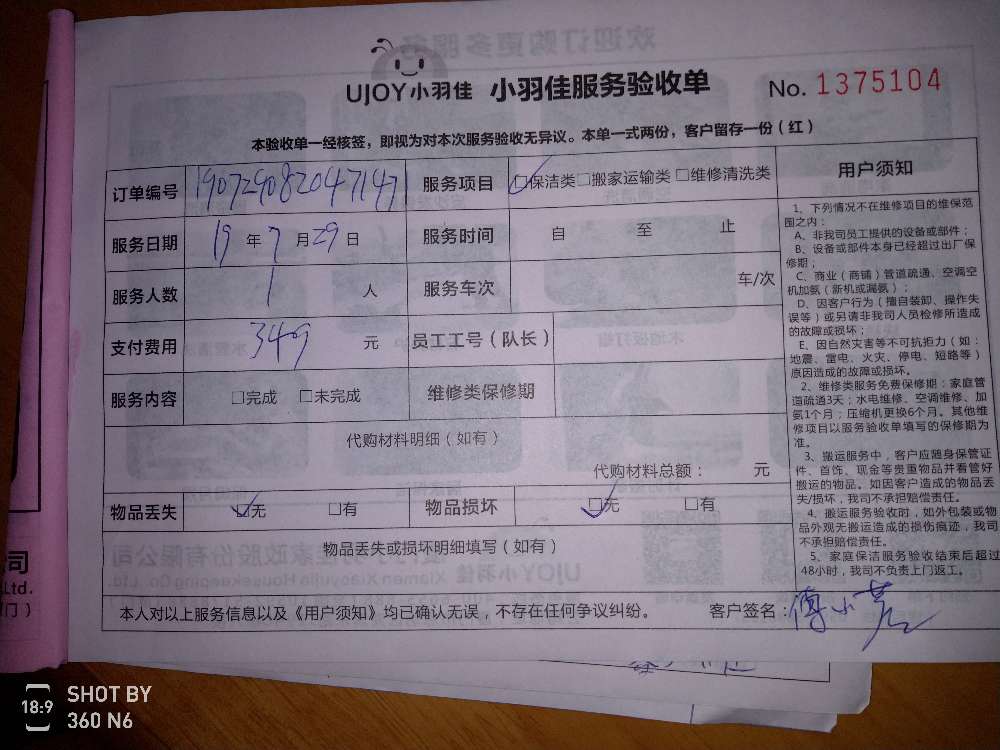 UJOY小羽佳 小羽佳服务验收单 No. 1375104
本验收单一经核签，即视为对本次服务验收无异议。本单一式两份，客户留存一份（红）
订单编号 190729082047147 服务项目 ☑保洁类□搬家运输类□维修清洗类
服务日期 19年7月29日 服务时间 自 至 止
服务人数 1 人 服务车次 车/次
支付费用 349 元 员工工号（队长）
服务内容 □完成 □未完成 维修类保修期
代购材料明细（如有）
代购材料总额： 元
物品丢失 ☑无 □有 物品损坏 ☑无 □有
物品丢失或损坏明细填写（如有）
本人对以上服务信息以及《用户须知》均已确认无误，不存在任何争议纠纷。 客户签名：傅小
用户须知
1、下列情况不在维修项目的维保范
围之内：
A、非我司员工提供的设备或部件；
B、设备或部件本身已经超过出厂保
修期；
C、商业（商铺）管道疏通、空调空
机加氨（新机或漏氨）；
D、因客户行为（擅自装卸、操作失
误等）或另请非我司人员检修所造成
的故障或损坏；
E、因自然灾害等不可抗拒力（如：
地震、雷电、火灾、停电、短路等）
原因造成的故障或损坏。
2、维修类服务免费保修期：家庭管
道疏通3天；水电维修、空调维修、加
氨1个月；压缩机更换6个月。其他维
修项目以服务验收单填写的保修期为
准。
3、搬运服务中，客户应随身保管证
件、首饰、现金等贵重物品并看管好
搬运的物品。如因客户造成的物品丢
失/损坏，我司不承担赔偿责任。
4、搬运服务验收时，如外包装或物
品外观无搬运造成的损伤痕迹，我司
不承担赔偿责任。
5、家庭保洁服务验收结束后超过
48小时，我司不负责上门返工。
司
Ltd.
门）
18:9 SHOT BY
360 N6